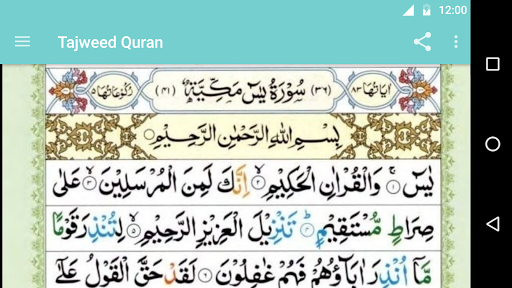 12:00
Tajweed Quran
اٰیَاتُهَا ٨٣ (٣٦) سُوْرَةُ يٰسٓ مَكِّيَّةٌ (٤١) رُكُوْعَاتُهَا ٥
بِسْمِ اللّٰهِ الرَّحْمٰنِ الرَّحِيْمِ
يٰسٓ ۚ ١ وَالْقُرْاٰنِ الْحَكِيْمِ ۙ ٢ اِنَّكَ لَمِنَ الْمُرْسَلِيْنَ ۙ ٣ عَلٰى
صِرَاطٍ مُّسْتَقِيْمٍ ؕ ٤ تَنْزِيْلَ الْعَزِيْزِ الرَّحِيْمِ ۙ ٥ لِتُنْذِرَ قَوْمًا
مَّاۤ اُنْذِرَ اٰبَآؤُهُمْ فَهُمْ غٰفِلُوْنَ ٦ لَقَدْ حَقَّ الْقَوْلُ عَلٰۤى